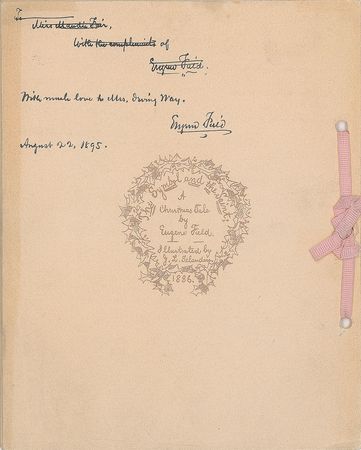 To
Miss Maude Fair,
With the compliments of
Eugene Field.
With much love to Mrs. Irving Way.
Eugene Field
August 22, 1895.
The Symbol and the Saint
A
Christmas Tale
by
Eugene Field.
Illustrated by
J. L.
1886.